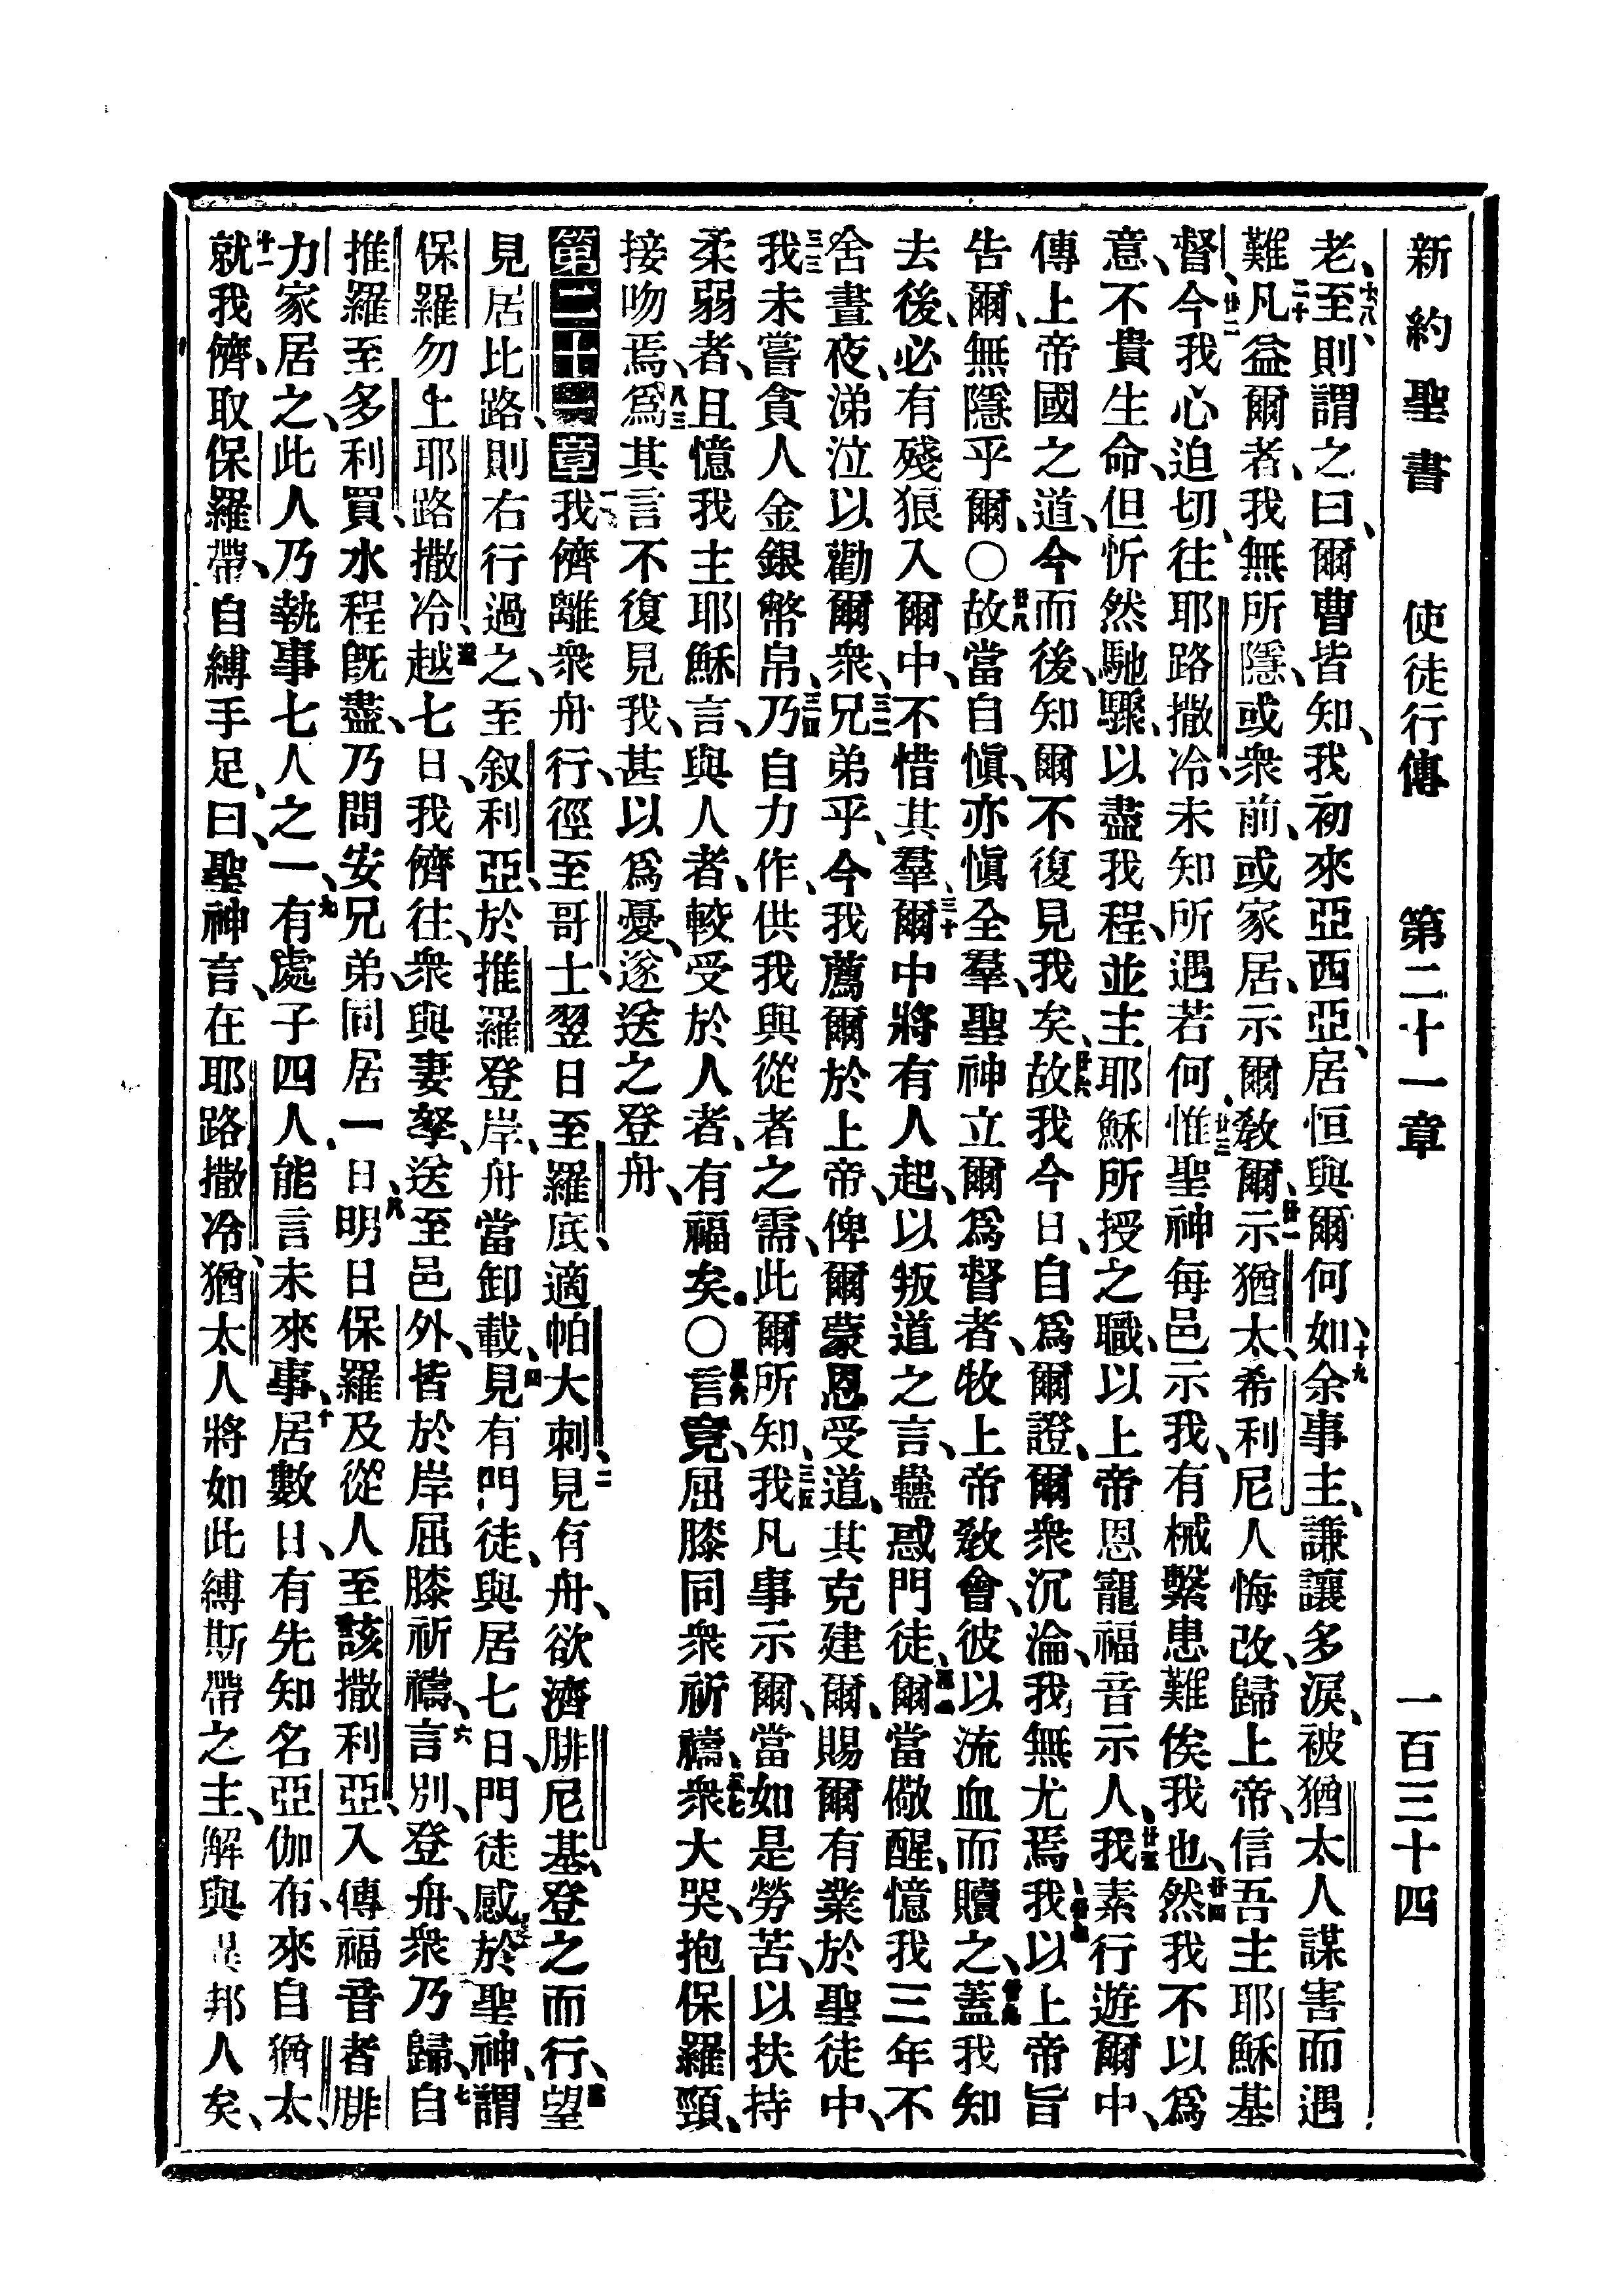 新約聖書 使徒行傳 第二十一章 一百三十四
老、十八至則謂之曰、爾曹皆知、我初來亞西亞、居恒與爾何如、十九余事主、謙讓多淚、被猶太人謀害而遇
難、二十凡益爾者、我無所隱、或衆前、或家居、示爾敎爾、廿一示猶太、希利尼人悔改、歸上帝、信吾主耶穌基
督、廿二今我心迫切、往耶路撒冷、未知所遇若何、廿三惟聖神每邑示我、有械繫患難俟我也、廿四然我不以爲
意、不貴生命、但忻然馳驟、以盡我程、並主耶穌所授之職、以上帝恩寵福音示人、廿五我素行遊爾中、
傳上帝國之道、今而後、知爾不復見我矣、廿六故我今日、自爲爾證、爾衆沉淪、我無尤焉、廿七我以上帝旨
告爾、無隱乎爾、○廿八故當自愼、亦愼全羣、聖神立爾爲督者、牧上帝敎會、彼以流血而贖之、廿九蓋我知
去後、必有殘狼入爾中、不惜其羣、三十爾中將有人起、以叛道之言、蠱惑門徒、爾當儆醒、憶我三年不
舍晝夜、涕泣以勸爾衆、三二兄弟乎、今我薦爾於上帝、俾爾蒙恩受道、其克建爾、賜爾有業於聖徒中、
三三我未嘗貪人金銀幣帛、三四乃自力作、供我與從者之需、此爾所知、三五我凡事示爾、當如是勞苦、以扶持
柔弱者、且憶我主耶穌言、與人者、較受於人者、有福矣。○言竟、屈膝同衆祈禱、衆大哭、抱保羅頸、
接吻焉、三八爲其言不復見我、甚以爲憂、遂送之登舟、
第二十一章一我儕離衆舟行、徑至哥士、翌日至羅底、適帕大刺、二見有舟、欲濟腓尼基、登之而行、三望
見居比路、則右行過之、至叙利亞、於推羅登岸、舟當卸載、四見有門徒、與居七日、門徒感於聖神、謂
保羅勿上耶路撒冷、五越七日、我儕往、衆與妻孥、送至邑外、皆於岸屈膝祈禱、六言別、登舟、衆乃歸、七自
推羅至多利買、水程旣盡、乃問安兄弟、同居一日、八明日保羅及從人至該撒利亞、入傳福音者腓
力家居之、此人乃執事七人之一、九有處子四人、能言未來事、十居數日、有先知名亞伽布、來自猶太、
十一就我儕、取保羅帶、自縛手足、曰、聖神言、在耶路撒冷、猶太人將如此縛斯帶之主、解與異邦人矣、